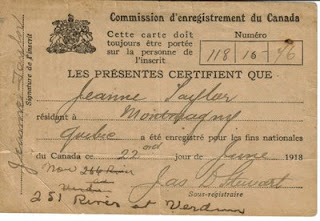 Commission d'enregistrement du Canada
Cette carte doit
toujours être portée
sur la personne de
l'inscrit
Numéro
118 | 16 | 46
LES PRÉSENTES CERTIFIENT QUE
Jeanne Taylor
résidant à Montmagny
Quebec a été enregistré pour les fins nationales
du Canada ce 22nd jour de June 1918
Jas D Stewart
Sous-registraire
Now 266 River
Verdun
251 River st Verdun
Jeanne Taylor
Signature de l'inscrit